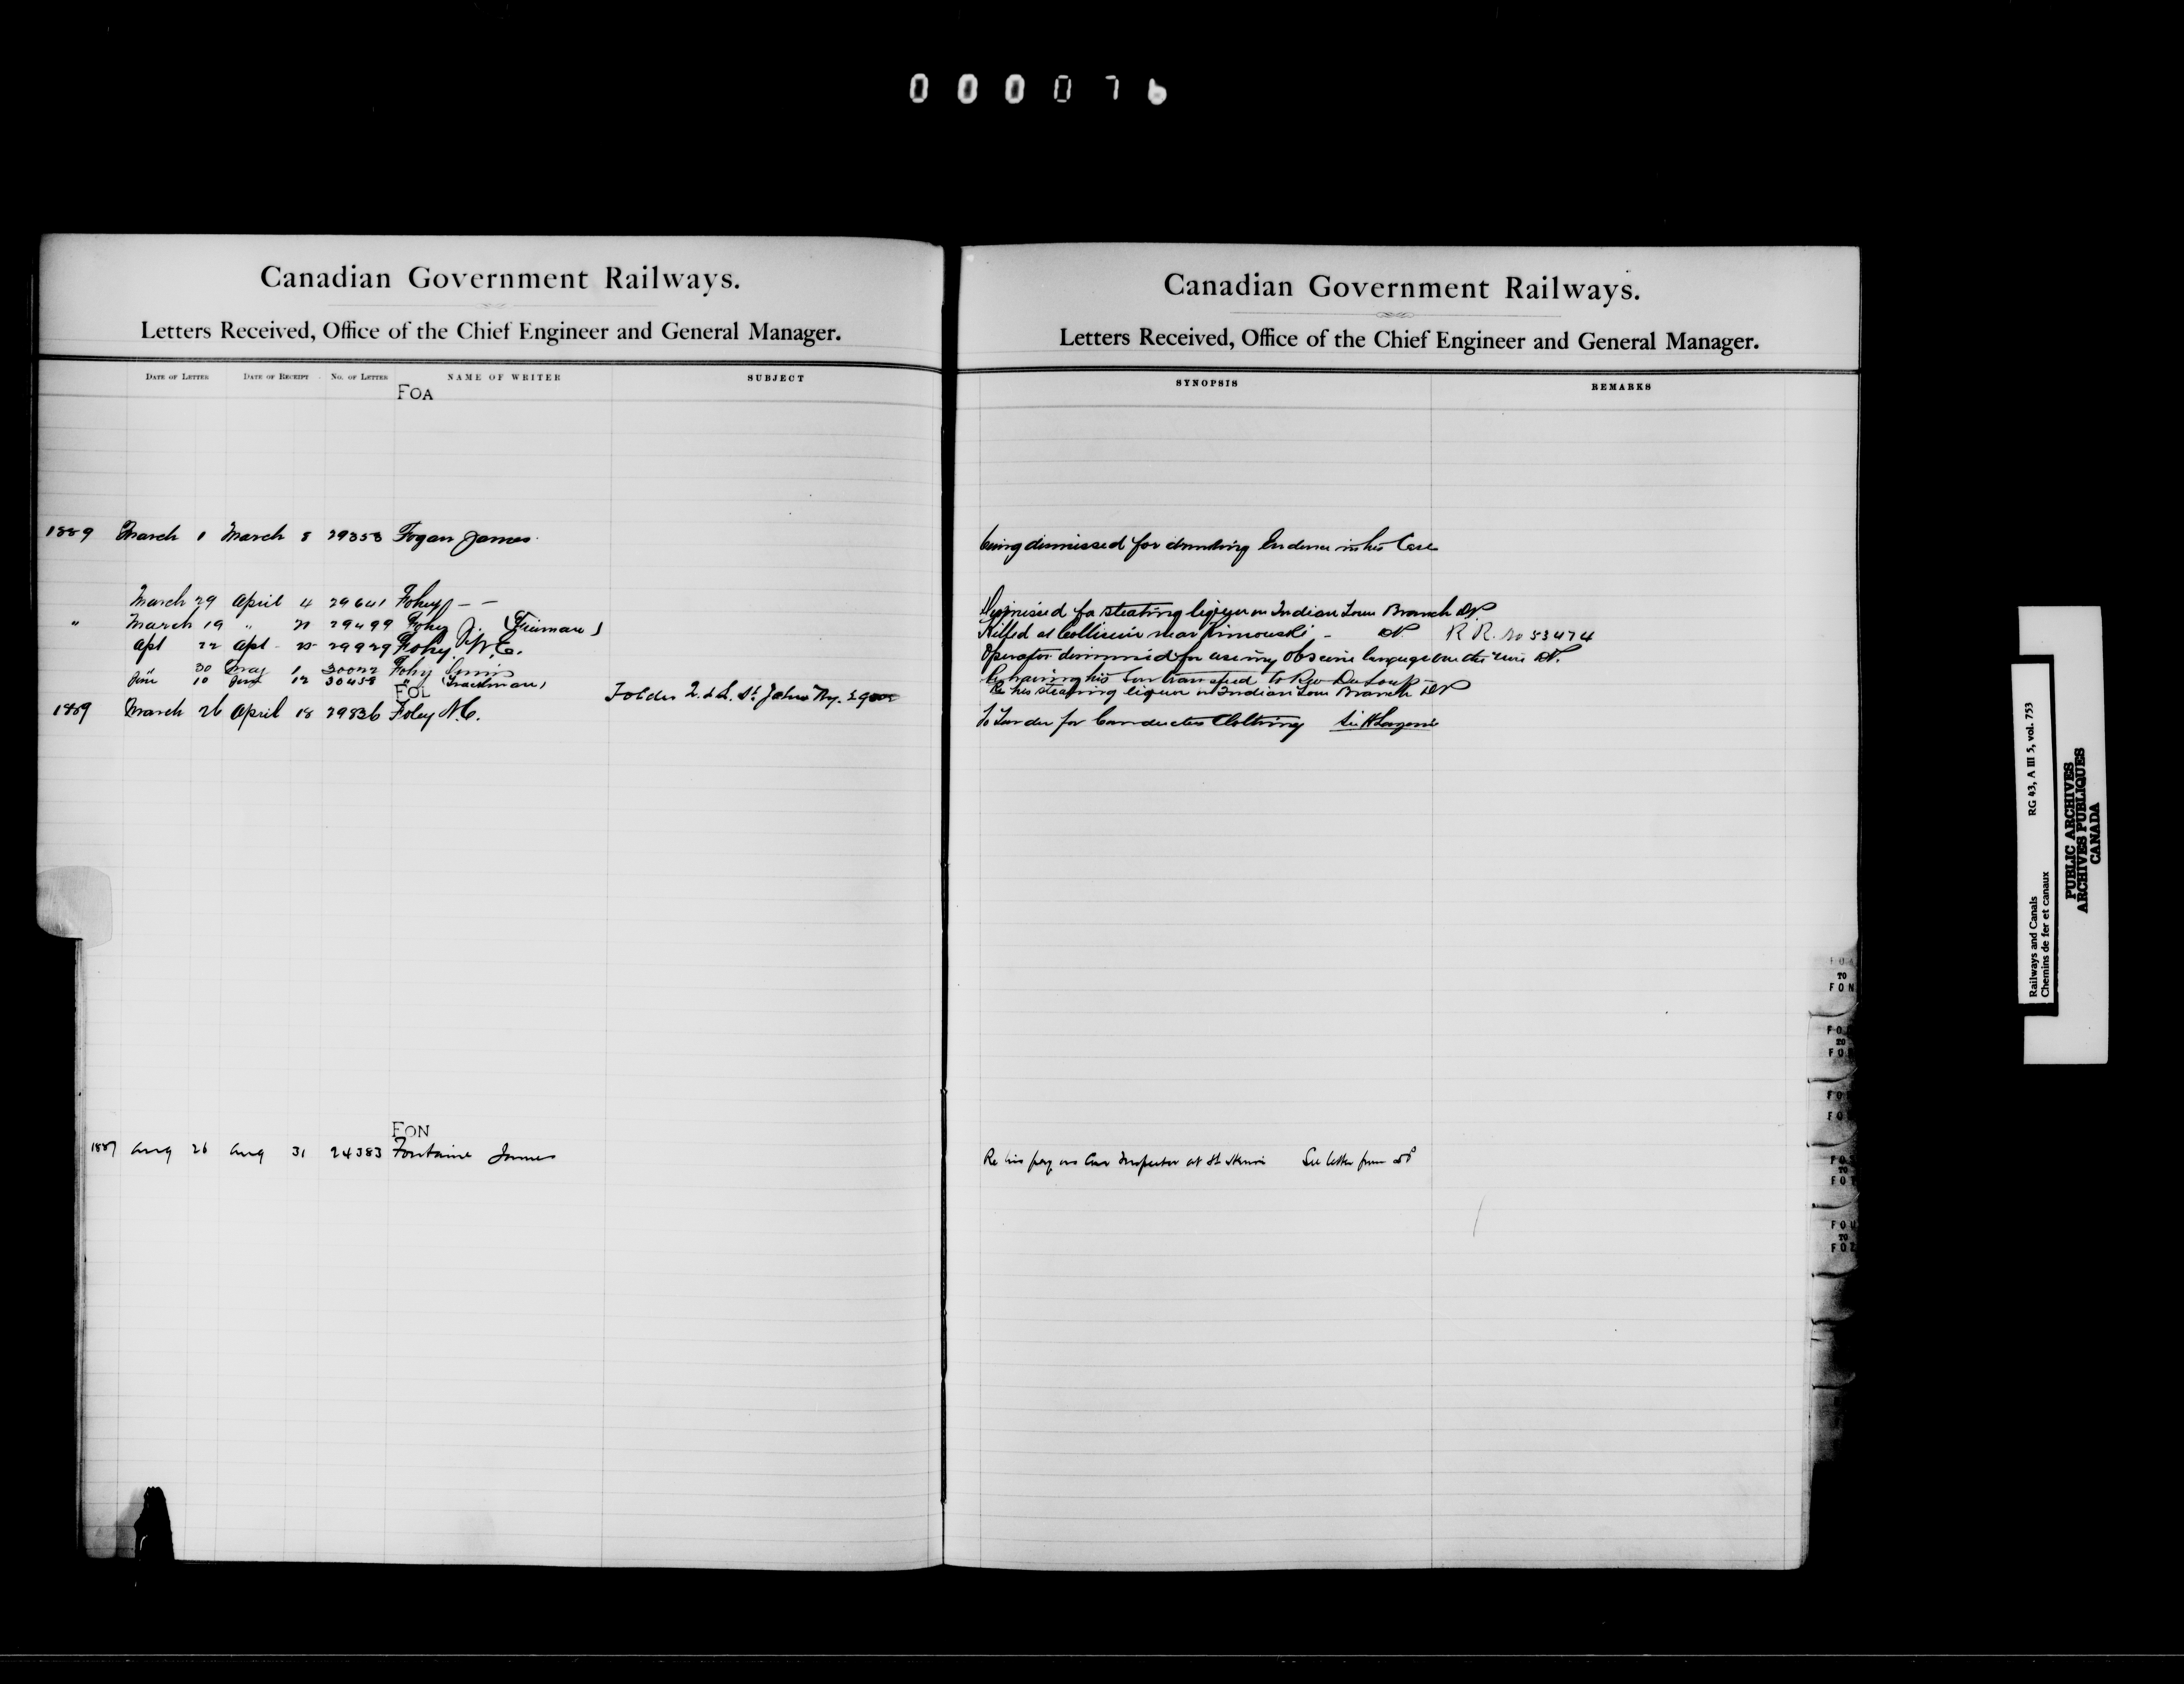 000076
Canadian Government Railways.
Letters Received, Office of the Chief Engineer and General Manager.
DATE OF LETTER DATE OF RECEIPT No. OF LETTER NAME OF WRITER SUBJECT
FOA
1889 March 1 March 8 29358 Fogan James
March 29 April 4 29641 Fohey - -
" March 19 " 29499 Fohey J. (Fireman)
Apl 22 Apl 29929 Fohey W. C.
" 30 May 1 30022 Fohy
June 10 June 12 30458 " (Trackman)
FOL
Folder St. Johns Ry.
1889 March 26 April 18 29836 Foley N. C.
FON
1887 Aug 26 Aug 31 24383 Fontaine James
Canadian Government Railways.
Letters Received, Office of the Chief Engineer and General Manager.
SYNOPSIS REMARKS
being dismissed for drinking Evidence in his Case
Dismissed for stealing liquor on Indian Town Branch DP
Killed at Collision near Rimouski - DP R R. No 53474
Operator dismissed for using obscene language over the wire DP.
Re having his Son transfered to Riv Du Loup
Re his stealing liquor on Indian Town Branch DP
To Tender for Conductors Clothing
Re his pay as Car Inspector at St Henri See letter from DP
FOA
TO
FON
FO
TO
FO
FO
FO
FO
TO
FOT
FOU
TO
FOZ
RG 43, A III 5, vol. 753
Railways and Canals
Chemins de fer et canaux
PUBLIC ARCHIVES
ARCHIVES PUBLIQUES
CANADA